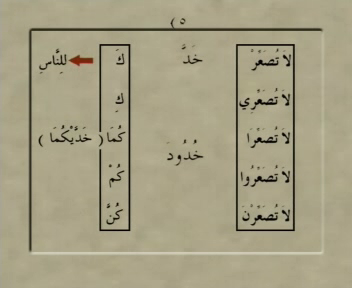 ( ٥
لاَ تُصَعِّرْ خَدَّ كَ لِلنَّاسِ
لاَ تُصَعِّرِي كِ
لاَ تُصَعِّرَا خُدُودَ كُمَا ( خَدَّيْكُمَا )
لاَ تُصَعِّرُوا كُمْ
لاَ تُصَعِّرْنَ كُنَّ